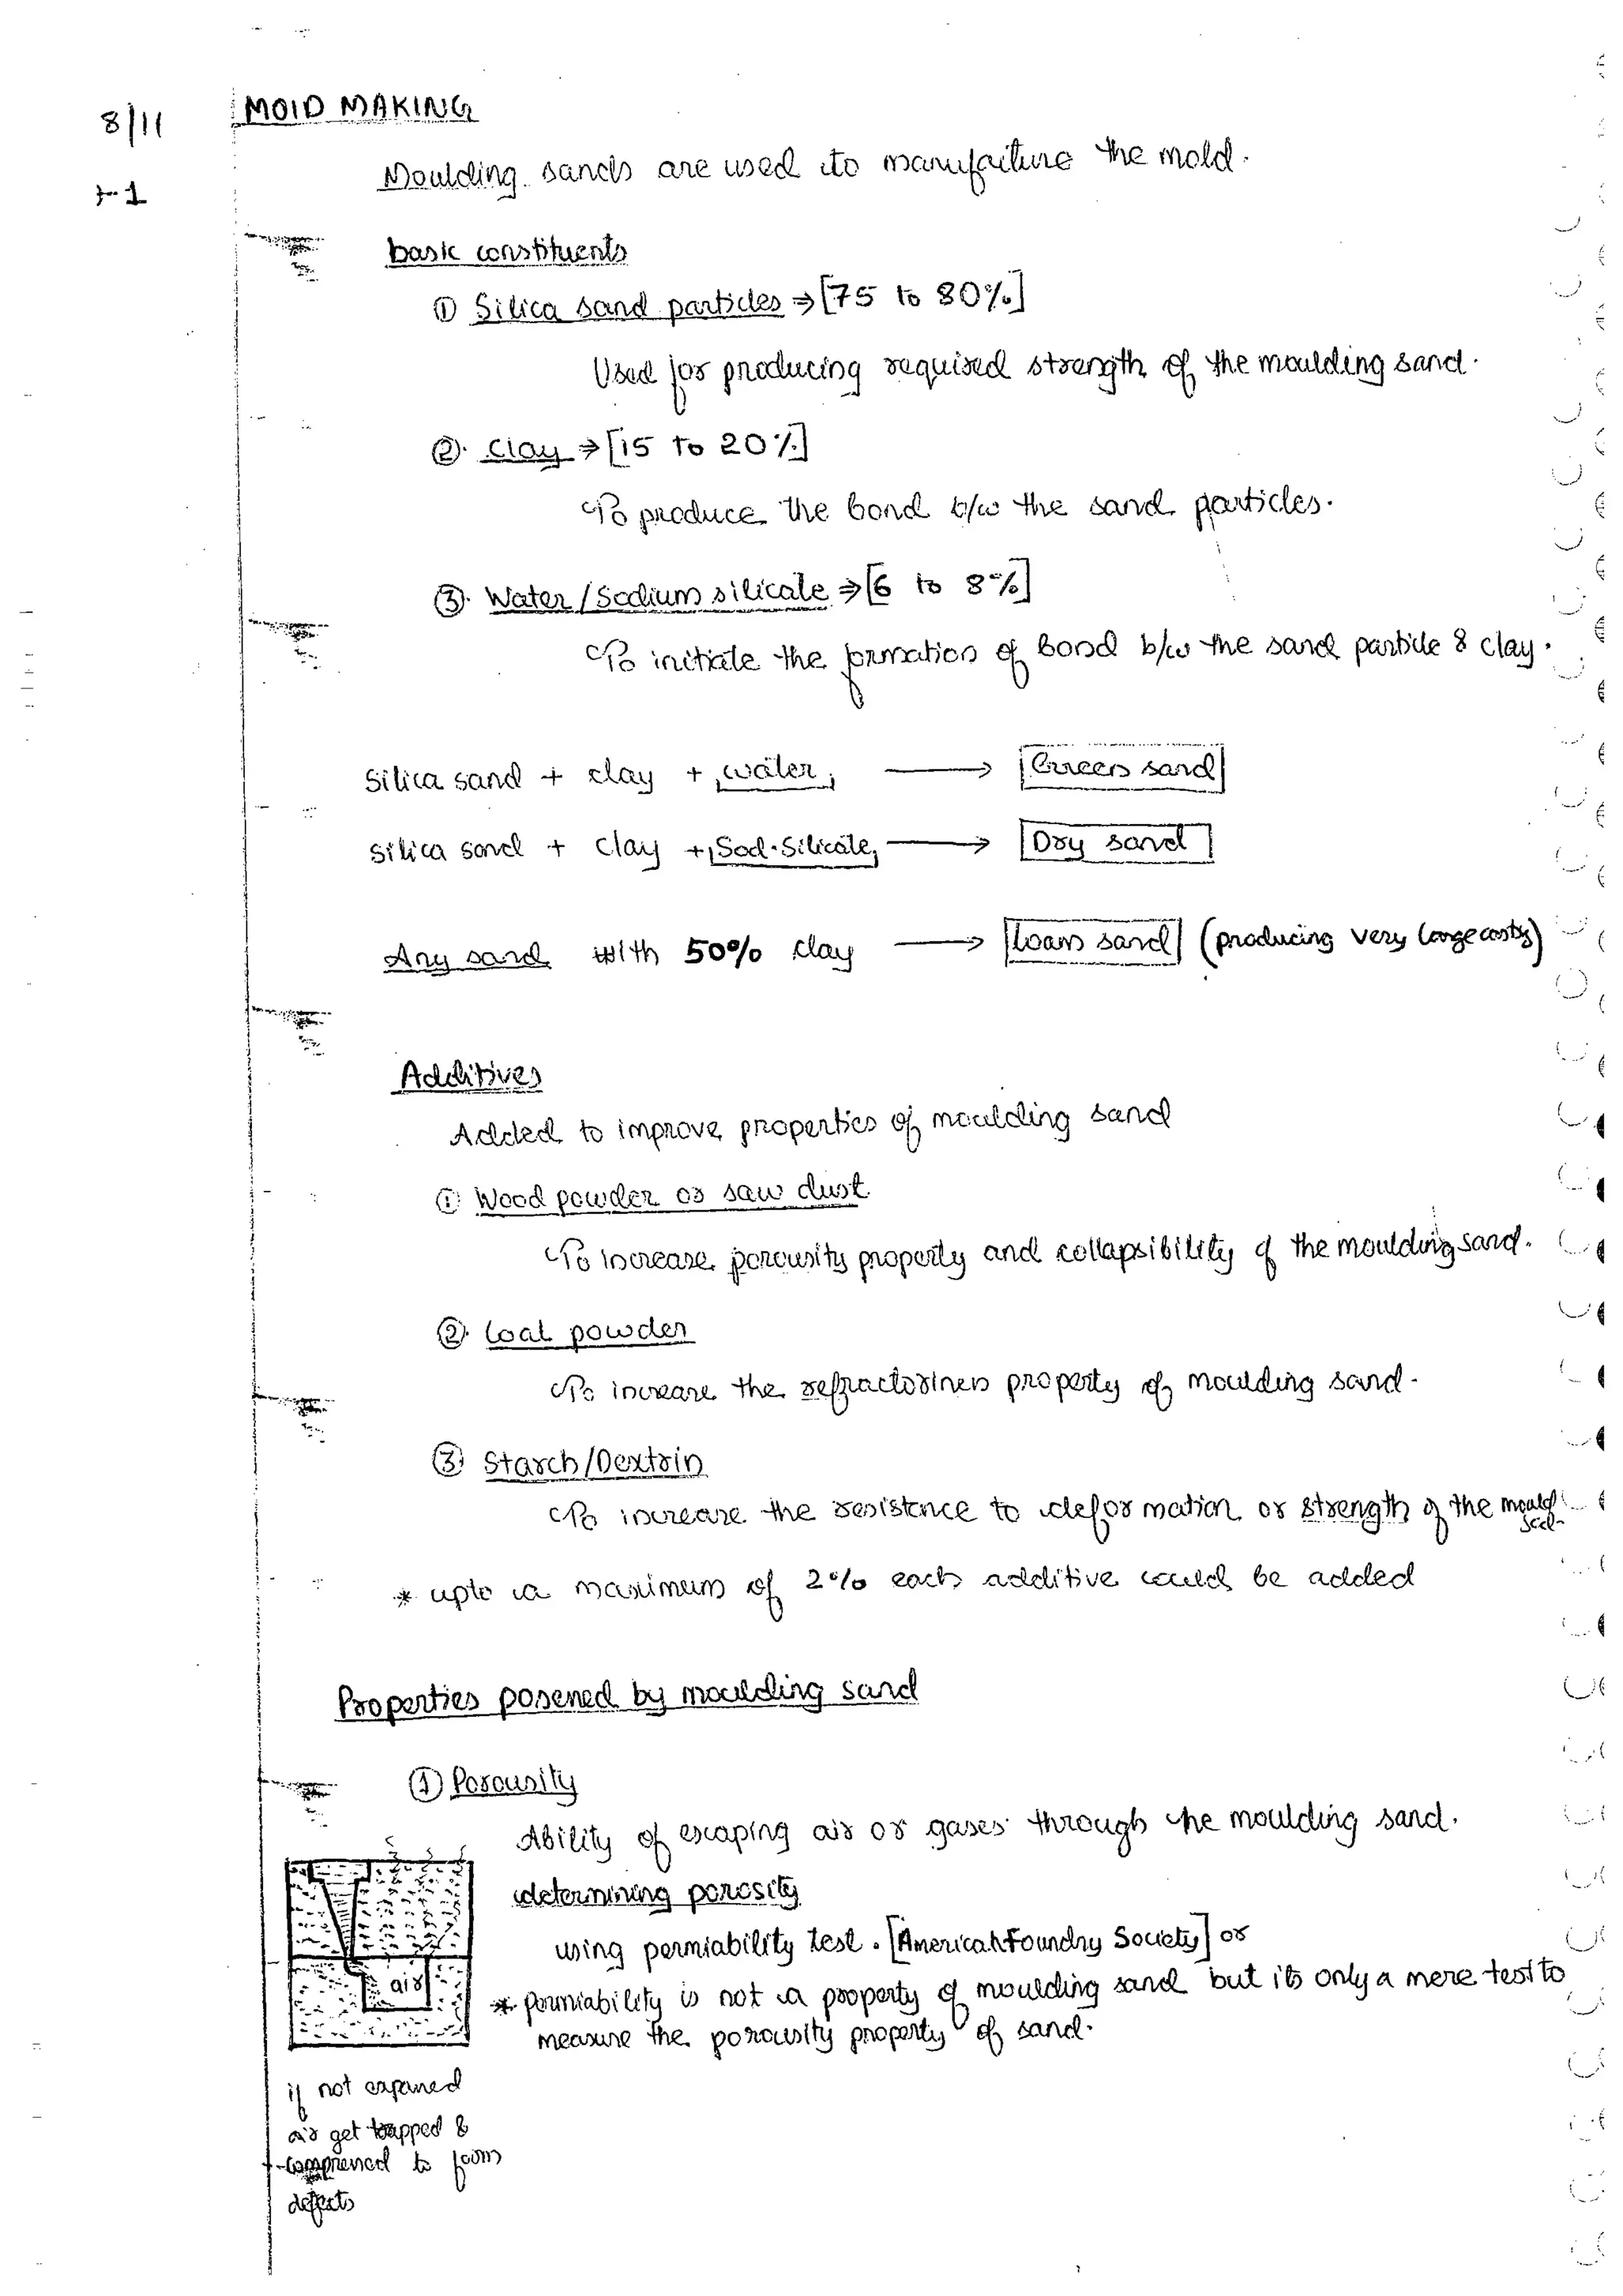 8/11
MOlD MAKING
1
Moulding sands are used to manufacture the mold.
basic constituents
① Silica sand particles ⇒ [75 to 80%]
Used for producing required strength of the moulding sand.
②. Clay ⇒ [15 to 20%]
To produce the bond b/w the sand particles.
③. Water/Sodium silicate ⇒ [6 to 8%]
To initiate the formation of Bond b/w the sand particle & clay.
Silica sand + clay + water ⟶ Green sand
Silica sand + clay + Sod. Silicate ⟶ Dry sand
Any sand with 50% clay ⟶ Loam sand (producing very large casty)
Additives
Added to improve properties of moulding sand
① Wood powder or saw dust
To increase porousity property and collapsibility of the moulding sand.
②. Coal powder
To increase the refractoriness property of moulding sand.
③ Starch/Dextrin
To increase the resistence to deformation or strength of the mould
* upto a maximum of 2% each additive could be added
Properties possessed by moulding sand
① Porousity
Ability of escaping air or gases through the moulding sand.
determining porosity
using permiability test. [American Foundry Society] or
* permiability is not a property of moulding sand but its only a mere test to
measure the porousity property of sand.
air
if not
air get trapped &
compressed to form
defects